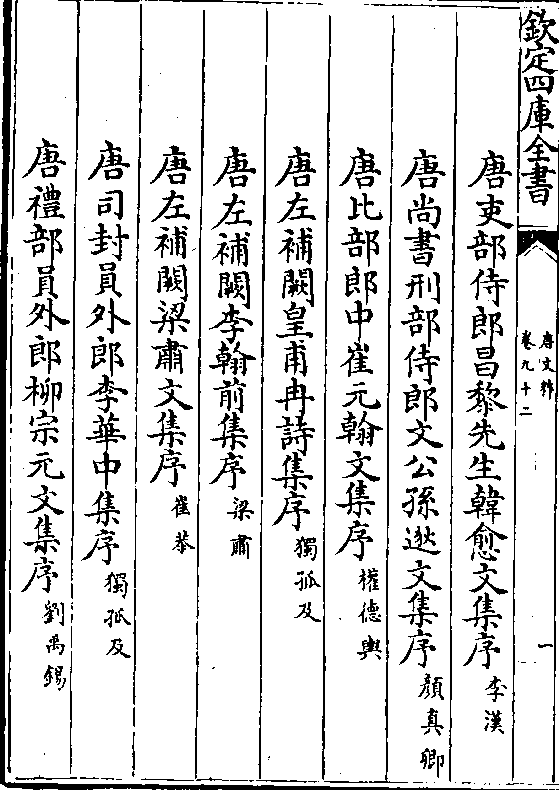 欽定四庫全書
唐文粹
卷九十二
一
唐吏部侍郎昌黎先生韓愈文集序 李漢
唐尚書刑部侍郎文公孫逖文集序 顔真卿
唐比部郎中崔元翰文集序 權德輿
唐左補闕皇甫冉詩集序 獨孤及
唐左補闕李翰前集序 梁肅
唐左補闕梁肅文集序 崔恭
唐司封員外郎李華中集序 獨孤及
唐禮部員外郎柳宗元文集序 劉禹錫